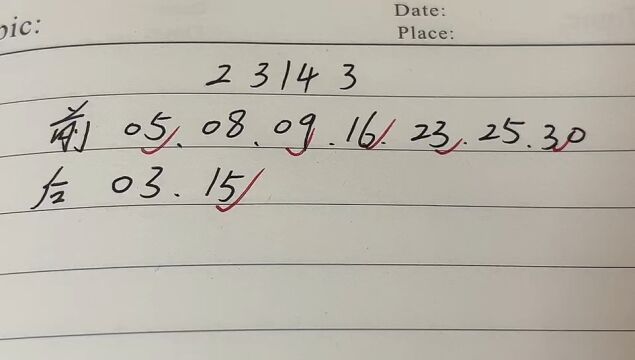 pic:
Date:
Place:
23143
前 05.08.09.16.23.25.30
后 03.15